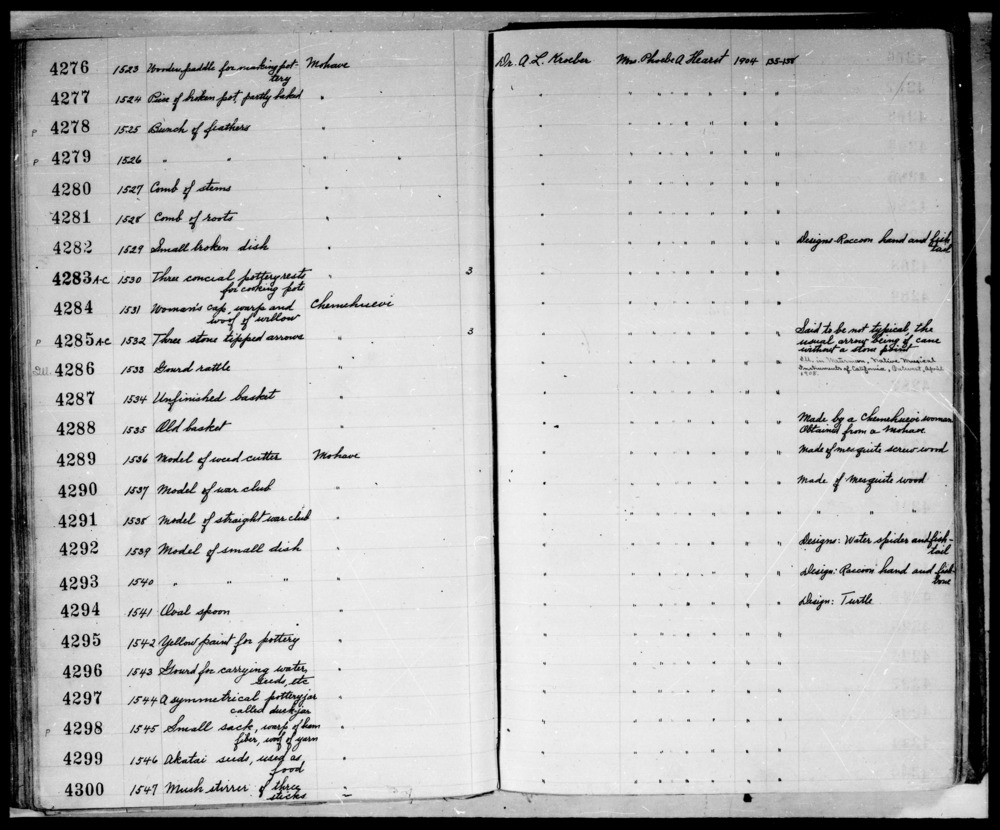 4276 1523 Wooden paddle for making pot- Mohave Dr. A. L. Kroeber Mrs. Phoebe A Hearst 1904 135-138
tery
4277 1524 Piece of broken pot, partly baked " " " " " " " "
P 4278 1525 Bunch of feathers " " " " " " " "
P 4279 1526 " " " " " " " " " " "
4280 1527 Comb of stems " " " " " " " "
4281 1528 Comb of roots " " " " " " " "
4282 1529 Small broken dish " " " " " " " " Designs Raccoon hand and fish
tail
4283 A-C 1530 Three conical pottery rests " 3 " " " " " " "
for cooking pots
4284 1531 Woman's cap, warp and Chemehuevi " " " " " " "
woof of willow
P 4285 A-C 1532 Three stone tipped arrows " 3 " " " " " " " Said to be not typical, the
usual arrow being of cane
without a stone point
4286 1533 Gourd rattle " " " " " " " " Ill. in Waterman, Native Musical
Instruments of California, Outwest, April
1908.
4287 1534 Unfinished basket " " " " " " " "
4288 1535 Old basket " " " " " " " " Made by a Chemehuevi woman
Obtained from a Mohave
4289 1536 Model of weed cutter Mohave " " " " " " " Made of mesquite screw wood
4290 1537 Model of war club " " " " " " " " Made of mesquite wood
4291 1538 Model of straight war club " " " " " " " " " "
4292 1539 Model of small dish " " " " " " " " Designs: Water spider and fish-
tail
4293 1540 " " " " " " " " " " " Design: Raccoon hand and fish
bone
4294 1541 Oval spoon " " " " " " " " Design: Turtle
4295 1542 Yellow paint for pottery " " " " " " " "
4296 1543 Gourd for carrying water, " " " " " " " "
seeds, etc
4297 1544 Asymmetrical pottery jar " " " " " " " "
called duck jar
P 4298 1545 Small sack, warp of bean " " " " " " " "
fiber, woof of yarn
4299 1546 Akatai seeds, used as " " " " " " " "
food
4300 1547 Mush stirrer of three " " " " " " " "
sticks